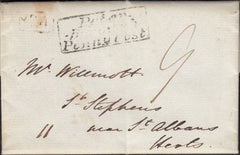 Penny Post
9
Mr. Willmott
St Stephens
11 near St Albans
Herts.